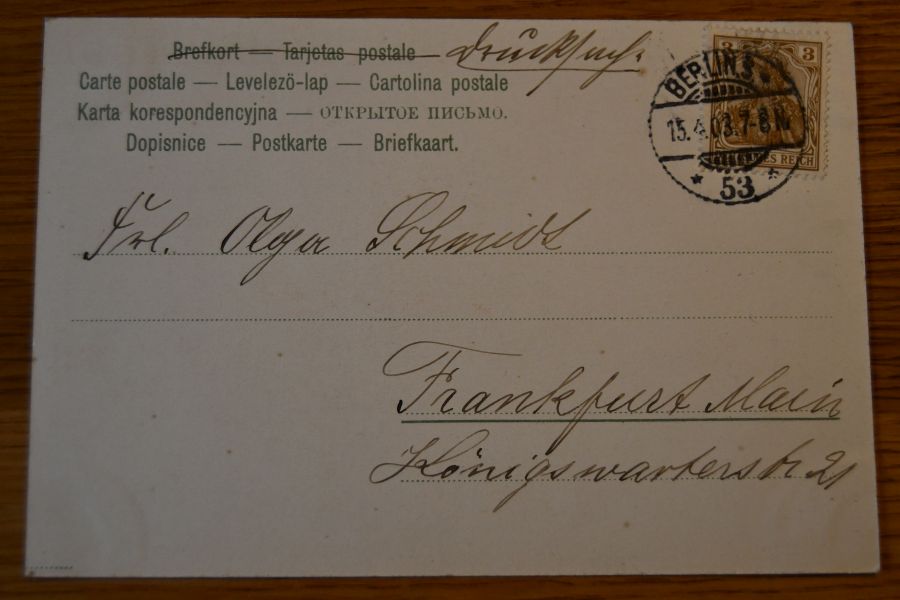 Brefkort — Tarjetas postale Drucksache
Carte postale — Levelezö-lap — Cartolina postale
Karta korespondencyjna — ОТКРЫТОЕ ПИСЬМО.
Dopisnice — Postkarte — Briefkaart.
3 3
BERLIN.S.
15.4.03.7-8N.
REICH
* 53 *
Frl. Olga Schmidt
Frankfurt Main
Königswarterstr 21